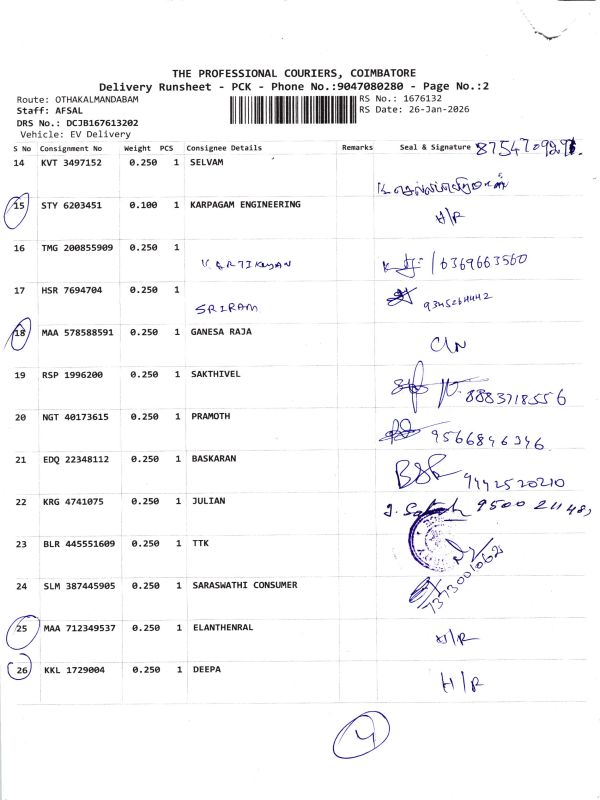 THE PROFESSIONAL COURIERS, COIMBATORE
Delivery Runsheet - PCK - Phone No.:9047080280 - Page No.:2
Route: OTHAKALMANDABAM RS No.: 1676132
Staff: AFSAL RS Date: 26-Jan-2026
DRS No.: DCJB167613202
Vehicle: EV Delivery
S No Consignment No Weight PCS Consignee Details Remarks Seal & Signature
14 KVT 3497152 0.250 1 SELVAM
15 STY 6203451 0.100 1 KARPAGAM ENGINEERING
H/R
16 TMG 200855909 0.250 1
KARTIKAYAN 6369663560
17 HSR 7694704 0.250 1
SRIRAM
18 MAA 578588591 0.250 1 GANESA RAJA
C/N
19 RSP 1996200 0.250 1 SAKTHIVEL
8883718556
20 NGT 40173615 0.250 1 PRAMOTH
9566846346
21 EDQ 22348112 0.250 1 BASKARAN
9442520210
22 KRG 4741075 0.250 1 JULIAN
23 BLR 445551609 0.250 1 TTK
24 SLM 387445905 0.250 1 SARASWATHI CONSUMER
7373001062
25 MAA 712349537 0.250 1 ELANTHENRAL
H/R
26 KKL 1729004 0.250 1 DEEPA
H/R
4